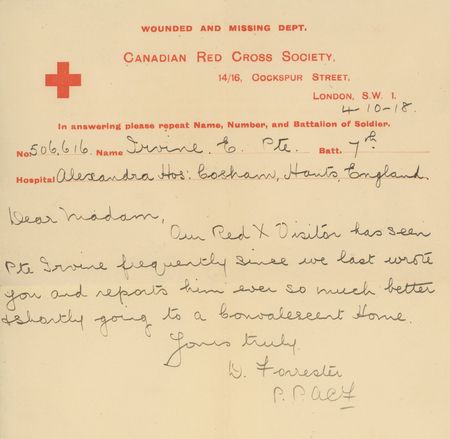 WOUNDED AND MISSING DEPT.
CANADIAN RED CROSS SOCIETY,
14/16, COCKSPUR STREET,
LONDON, S.W. 1.
4-10-18.
In answering please repeat Name, Number, and Battalion of Soldier.
No. 506,616. Name Irvine. E. Pte. Batt. 7th
Hospital Alexandra Hos: Cosham, Hants, England.
Dear Madam,
Our Red X Visitor has seen
Pte Irvine frequently since we last wrote
you and reports him ever so much better
& shortly going to a Convalescent Home.
Yours truly.
D. Forrester